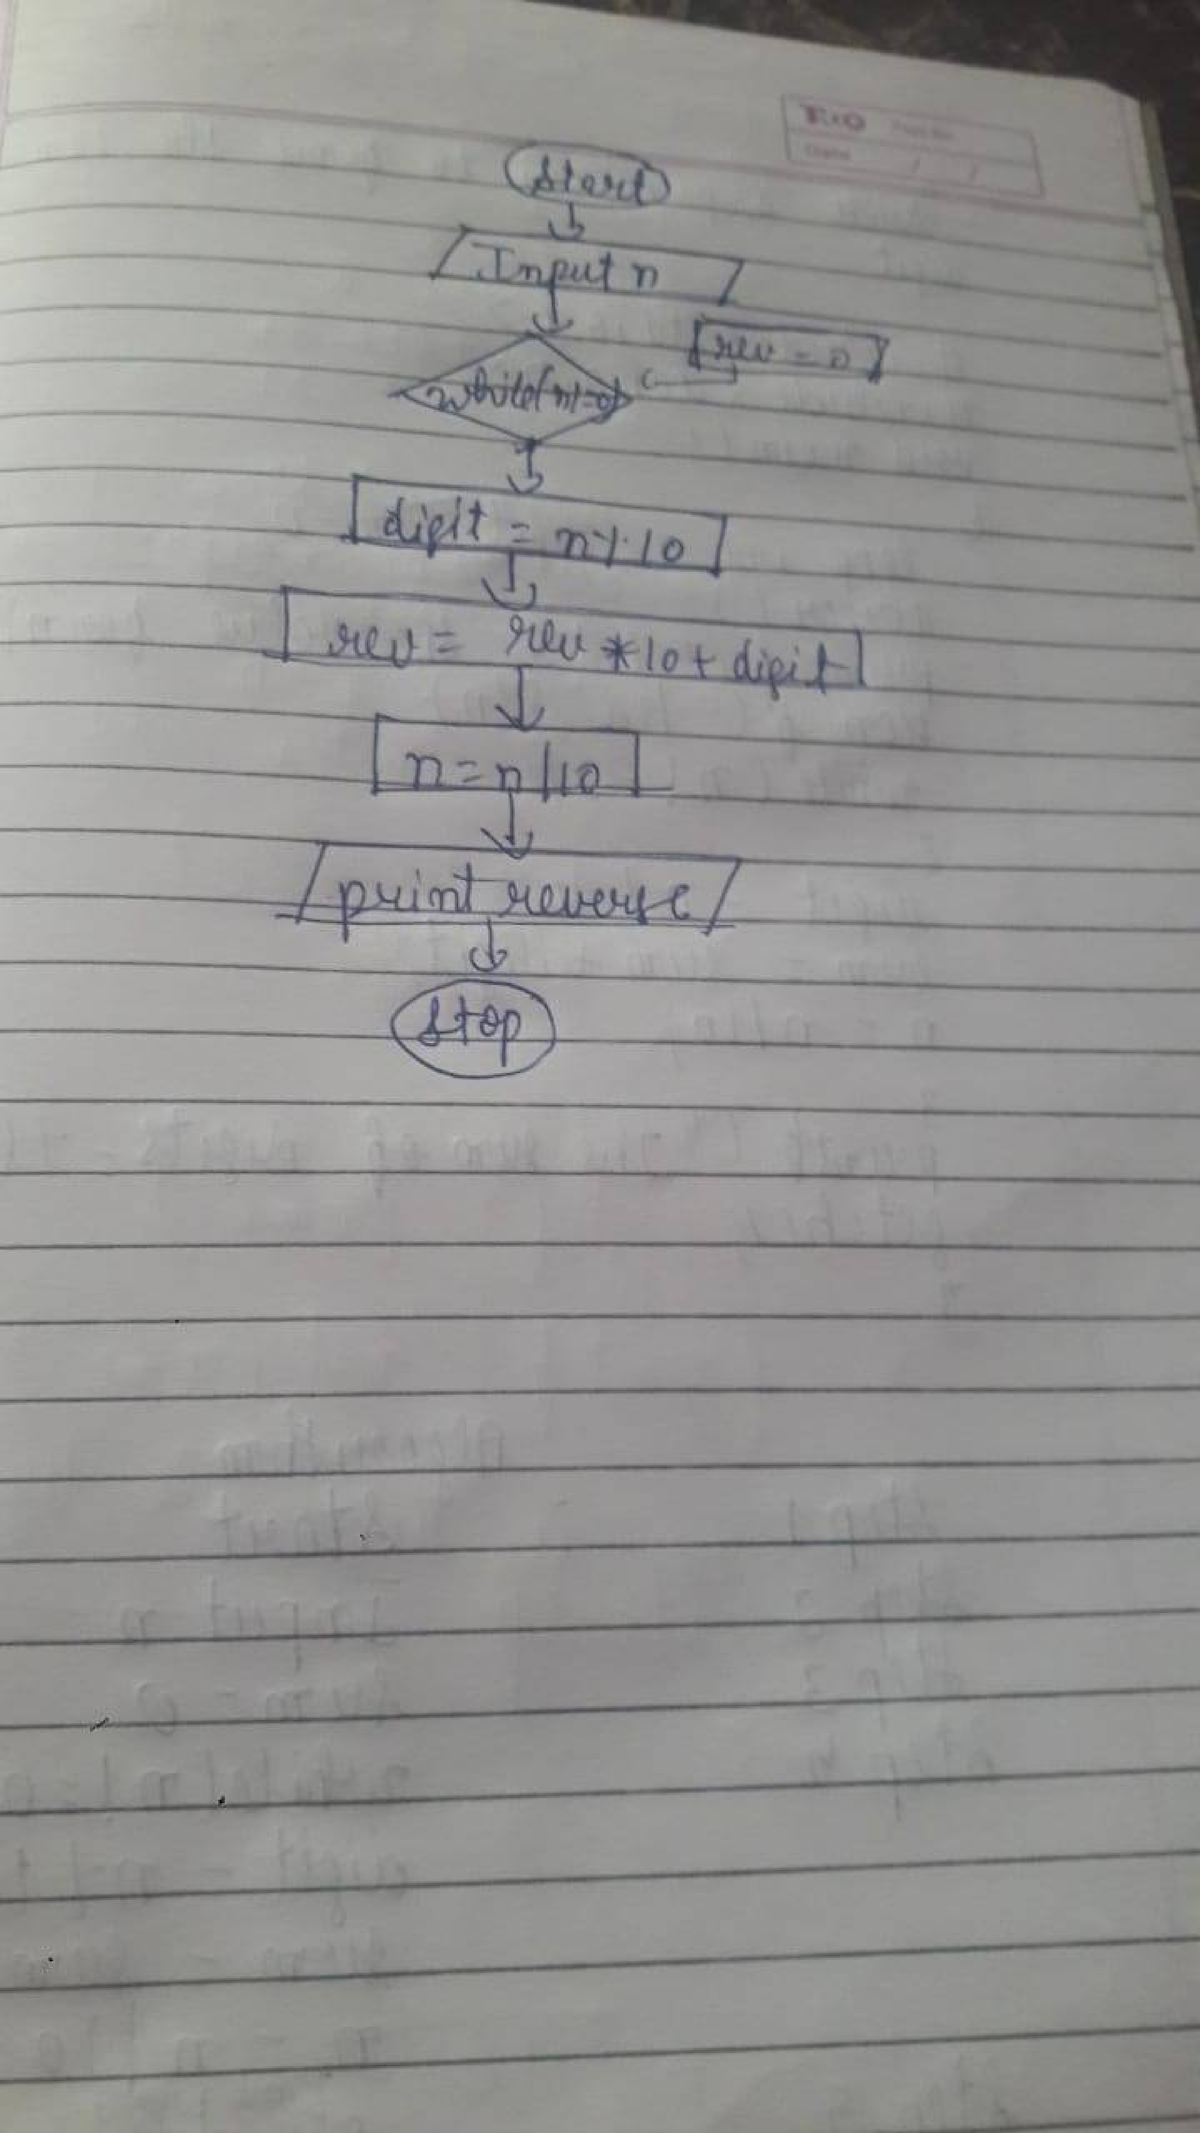 Start
Input n
rev = 0
while(n!=0)
digit = n%10
rev = rev *10+ digit
n=n/10
print reverse
Stop